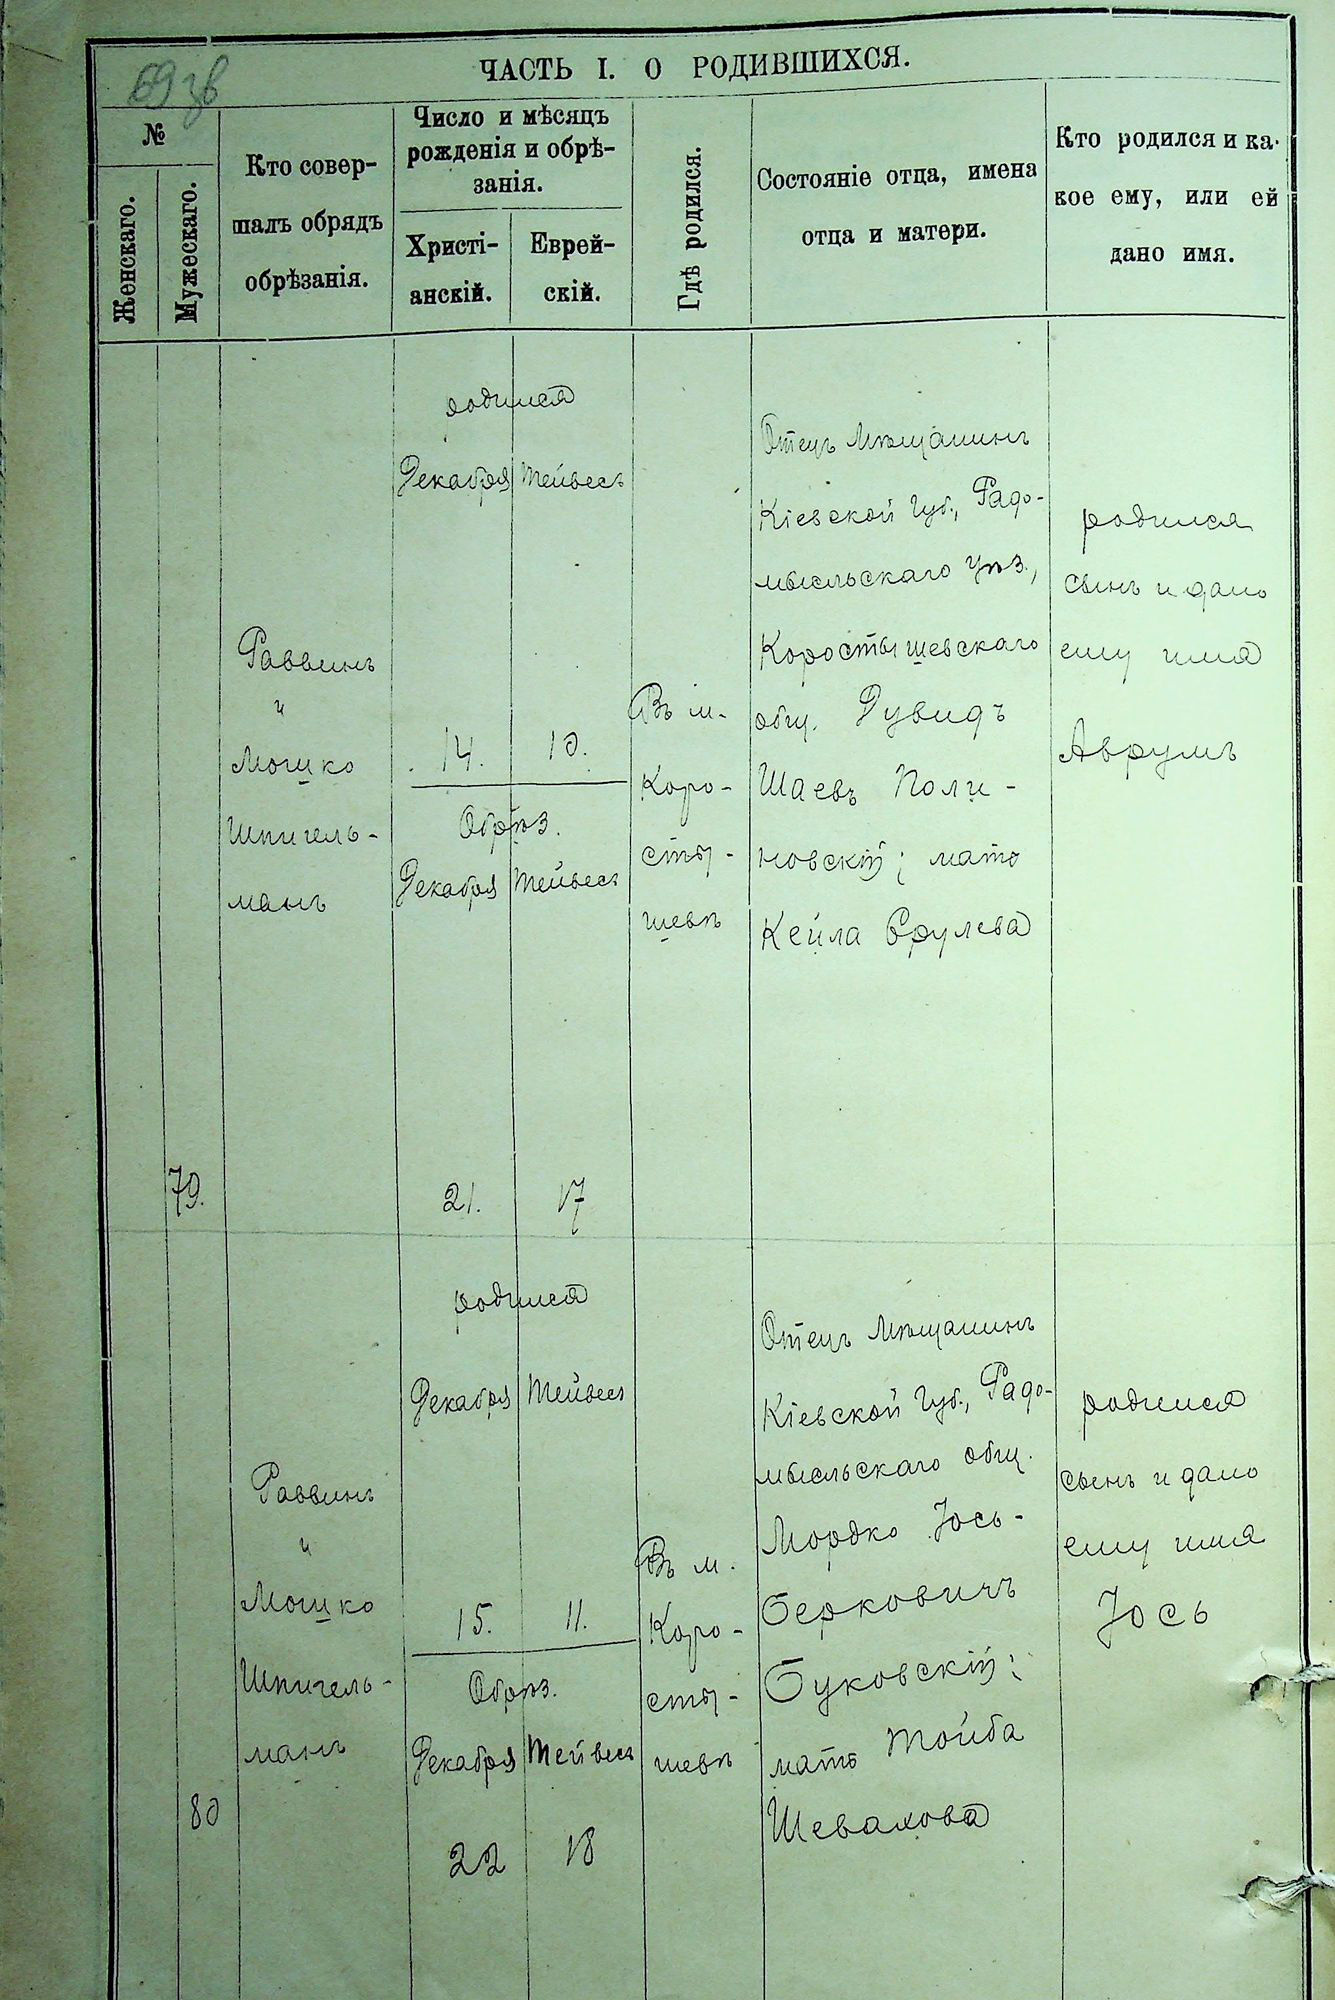 69 зв
ЧАСТЬ I. О РОДИВШИХСЯ.
№
Женскаго.
Мужескаго.
Кто совер-
шалъ обрядъ
обрѣзанія.
Число и мѣсяцъ
рожденія и обрѣ-
занія.
Христі-
анскій.
Еврей-
скій.
Гдѣ родился.
Состояніе отца, имена
отца и матери.
Кто родился и ка-
кое ему, или ей
дано имя.
79.
Раввинъ
и
Мошко
Шпигель-
манъ
родился
Декабря Тейвесъ
14. 10.
Обрѣз.
Декабря Тейвесъ
21. 17
Въ м.
Коро-
сты-
шевѣ
Отецъ Мѣщанинъ
Кіевской Губ., Радо-
мысльскаго Уѣз.,
Коростышевскаго
общ. Дувидъ
Шаевъ Поли-
новскій; мать
Кейла Срулева
родился
сынъ и дано
ему имя
Аврумъ
80
Раввинъ
и
Мошко
Шпигель-
манъ
родился
Декабря Тейвесъ
15. 11.
Обрѣз.
Декабря Тейвесъ
22 18
Въ м.
Коро-
сты-
шевѣ
Отецъ Мѣщанинъ
Кіевской Губ., Радо-
мысльскаго общ.
Мордко Іось-
Берковичъ
Буковскій;
мать Тойба
Шевахова
родился
сынъ и дано
ему имя
Іось